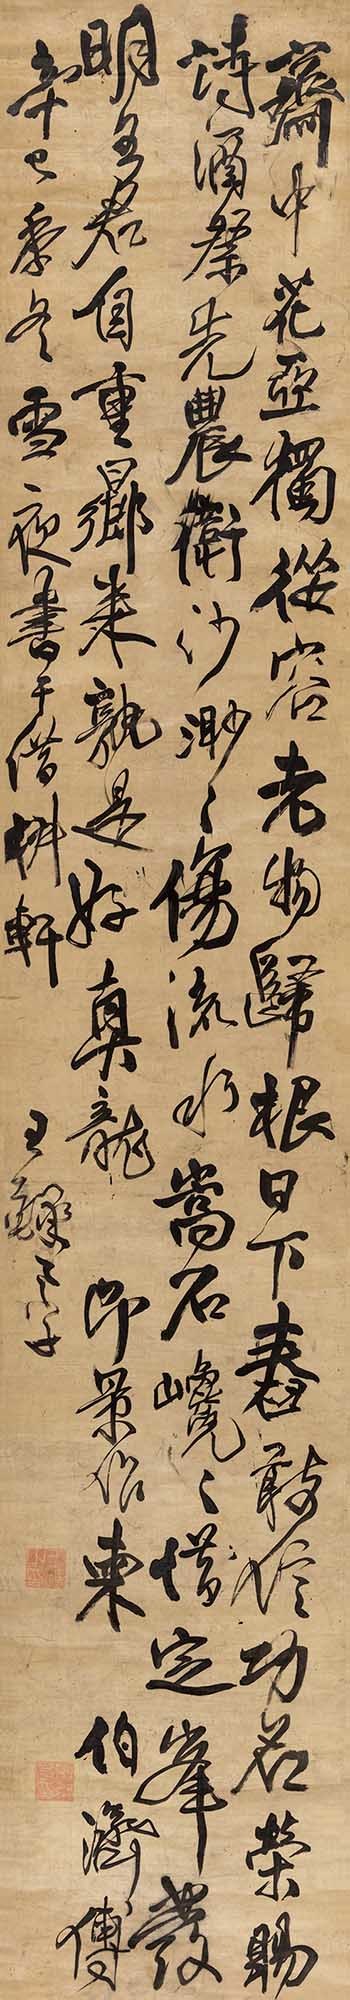 齋中花亞獨從容老物歸根日下舂敢信功名榮賜
詩酒祭先農衛沙渺〻傷流水嵩石巉〻惜定峯發
明主君自重鄉來孰是好真龍 即景作柬 伯濟傳
辛巳季冬雪夜書于借枓軒 王鐸